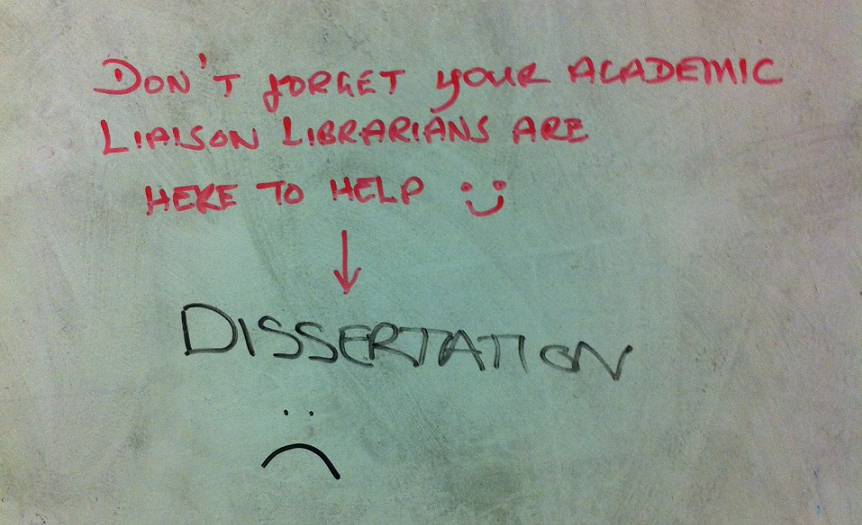 DON'T FORGET YOUR ACADEMIC
LIAISON LIBRARIANS ARE
HERE TO HELP
DISSERTATION